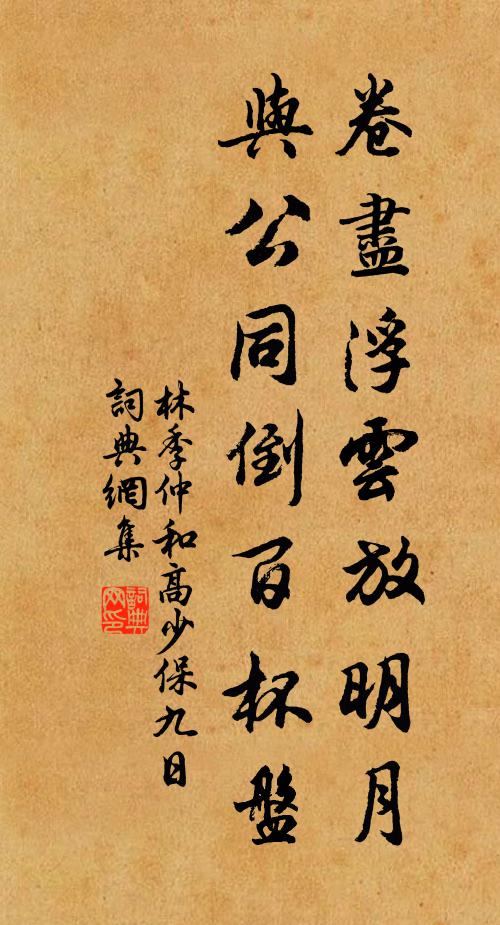 卷盡浮雲放明月
與公同倒百杯盤
林季仲和高少保九日
詞典網集
詞典网印